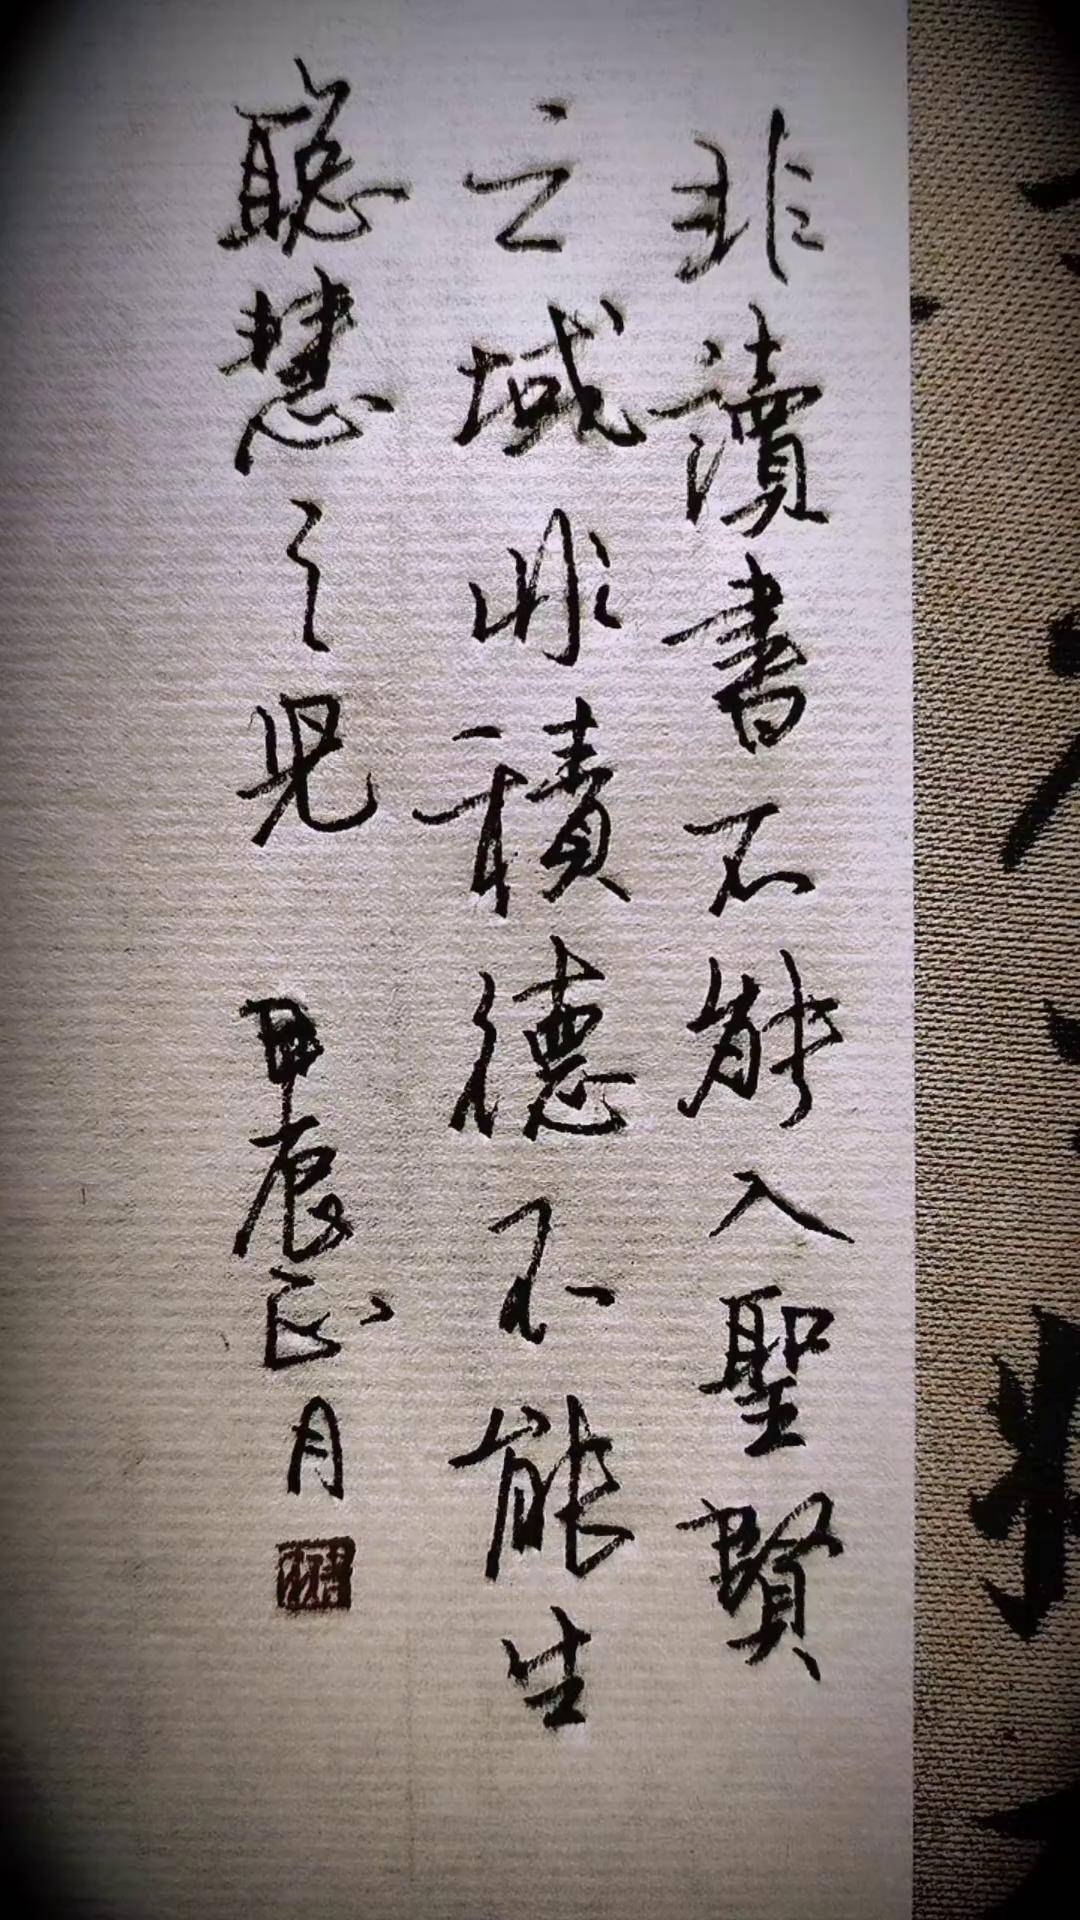 非讀書不能入聖賢
之域非積德不能生
聰慧之児 甲辰正月